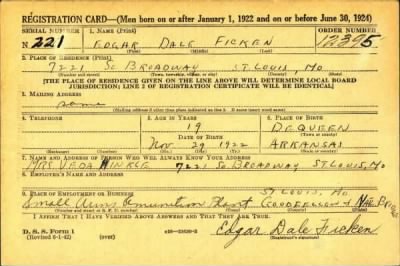 REGISTRATION CARD—(Men born on or after January 1, 1922 and on or before June 30, 1924)
SERIAL NUMBER 1. NAME (Print) ORDER NUMBER
N 221 EDGAR DALE FICKEN 12395
(First) (Middle) (Last)
2. PLACE OF RESIDENCE (Print)
7221 So BROADWAY ST. LOUIS MO
(Number and street) (Town, township, village, or city) (County) (State)
[THE PLACE OF RESIDENCE GIVEN ON THE LINE ABOVE WILL DETERMINE LOCAL BOARD
JURISDICTION; LINE 2 OF REGISTRATION CERTIFICATE WILL BE IDENTICAL]
3. MAILING ADDRESS
Same
(Mailing address if other than place indicated on line 2. If same insert word same)
4. TELEPHONE 5. AGE IN YEARS 6. PLACE OF BIRTH
19 DEQUEEN
DATE OF BIRTH (Town or county)
Nov 29 1922 ARKANSAS
(Exchange) (Number) (Mo.) (Day) (Yr.) (State or country)
7. NAME AND ADDRESS OF PERSON WHO WILL ALWAYS KNOW YOUR ADDRESS
MRS VEDA HINKLE 7221 So. BROADWAY ST LOUIS, Mo
8. EMPLOYER'S NAME AND ADDRESS
9. PLACE OF EMPLOYMENT OR BUSINESS ST LOUIS, MO
Small Arms Amunition Plant GOODFELLOW &
(Number and street or R. F. D. number) (Town) (County) (State)
I AFFIRM THAT I HAVE VERIFIED ABOVE ANSWERS AND THAT THEY ARE TRUE.
D. S. S. Form 1
(Revised 6-1-42)
Edgar Dale Ficken